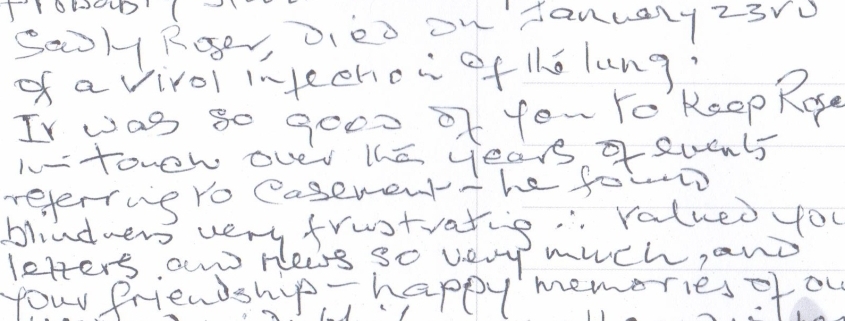 Probably
Sadly Roger, died on January 23rd
of a viral infection of the lung.
It was so good of you to keep Roge
in-touch over the years of events
referring to Casement - he found
blindness very frustrating ∴ valued you
letters and news so very much, and
your friendship - happy memories of ou